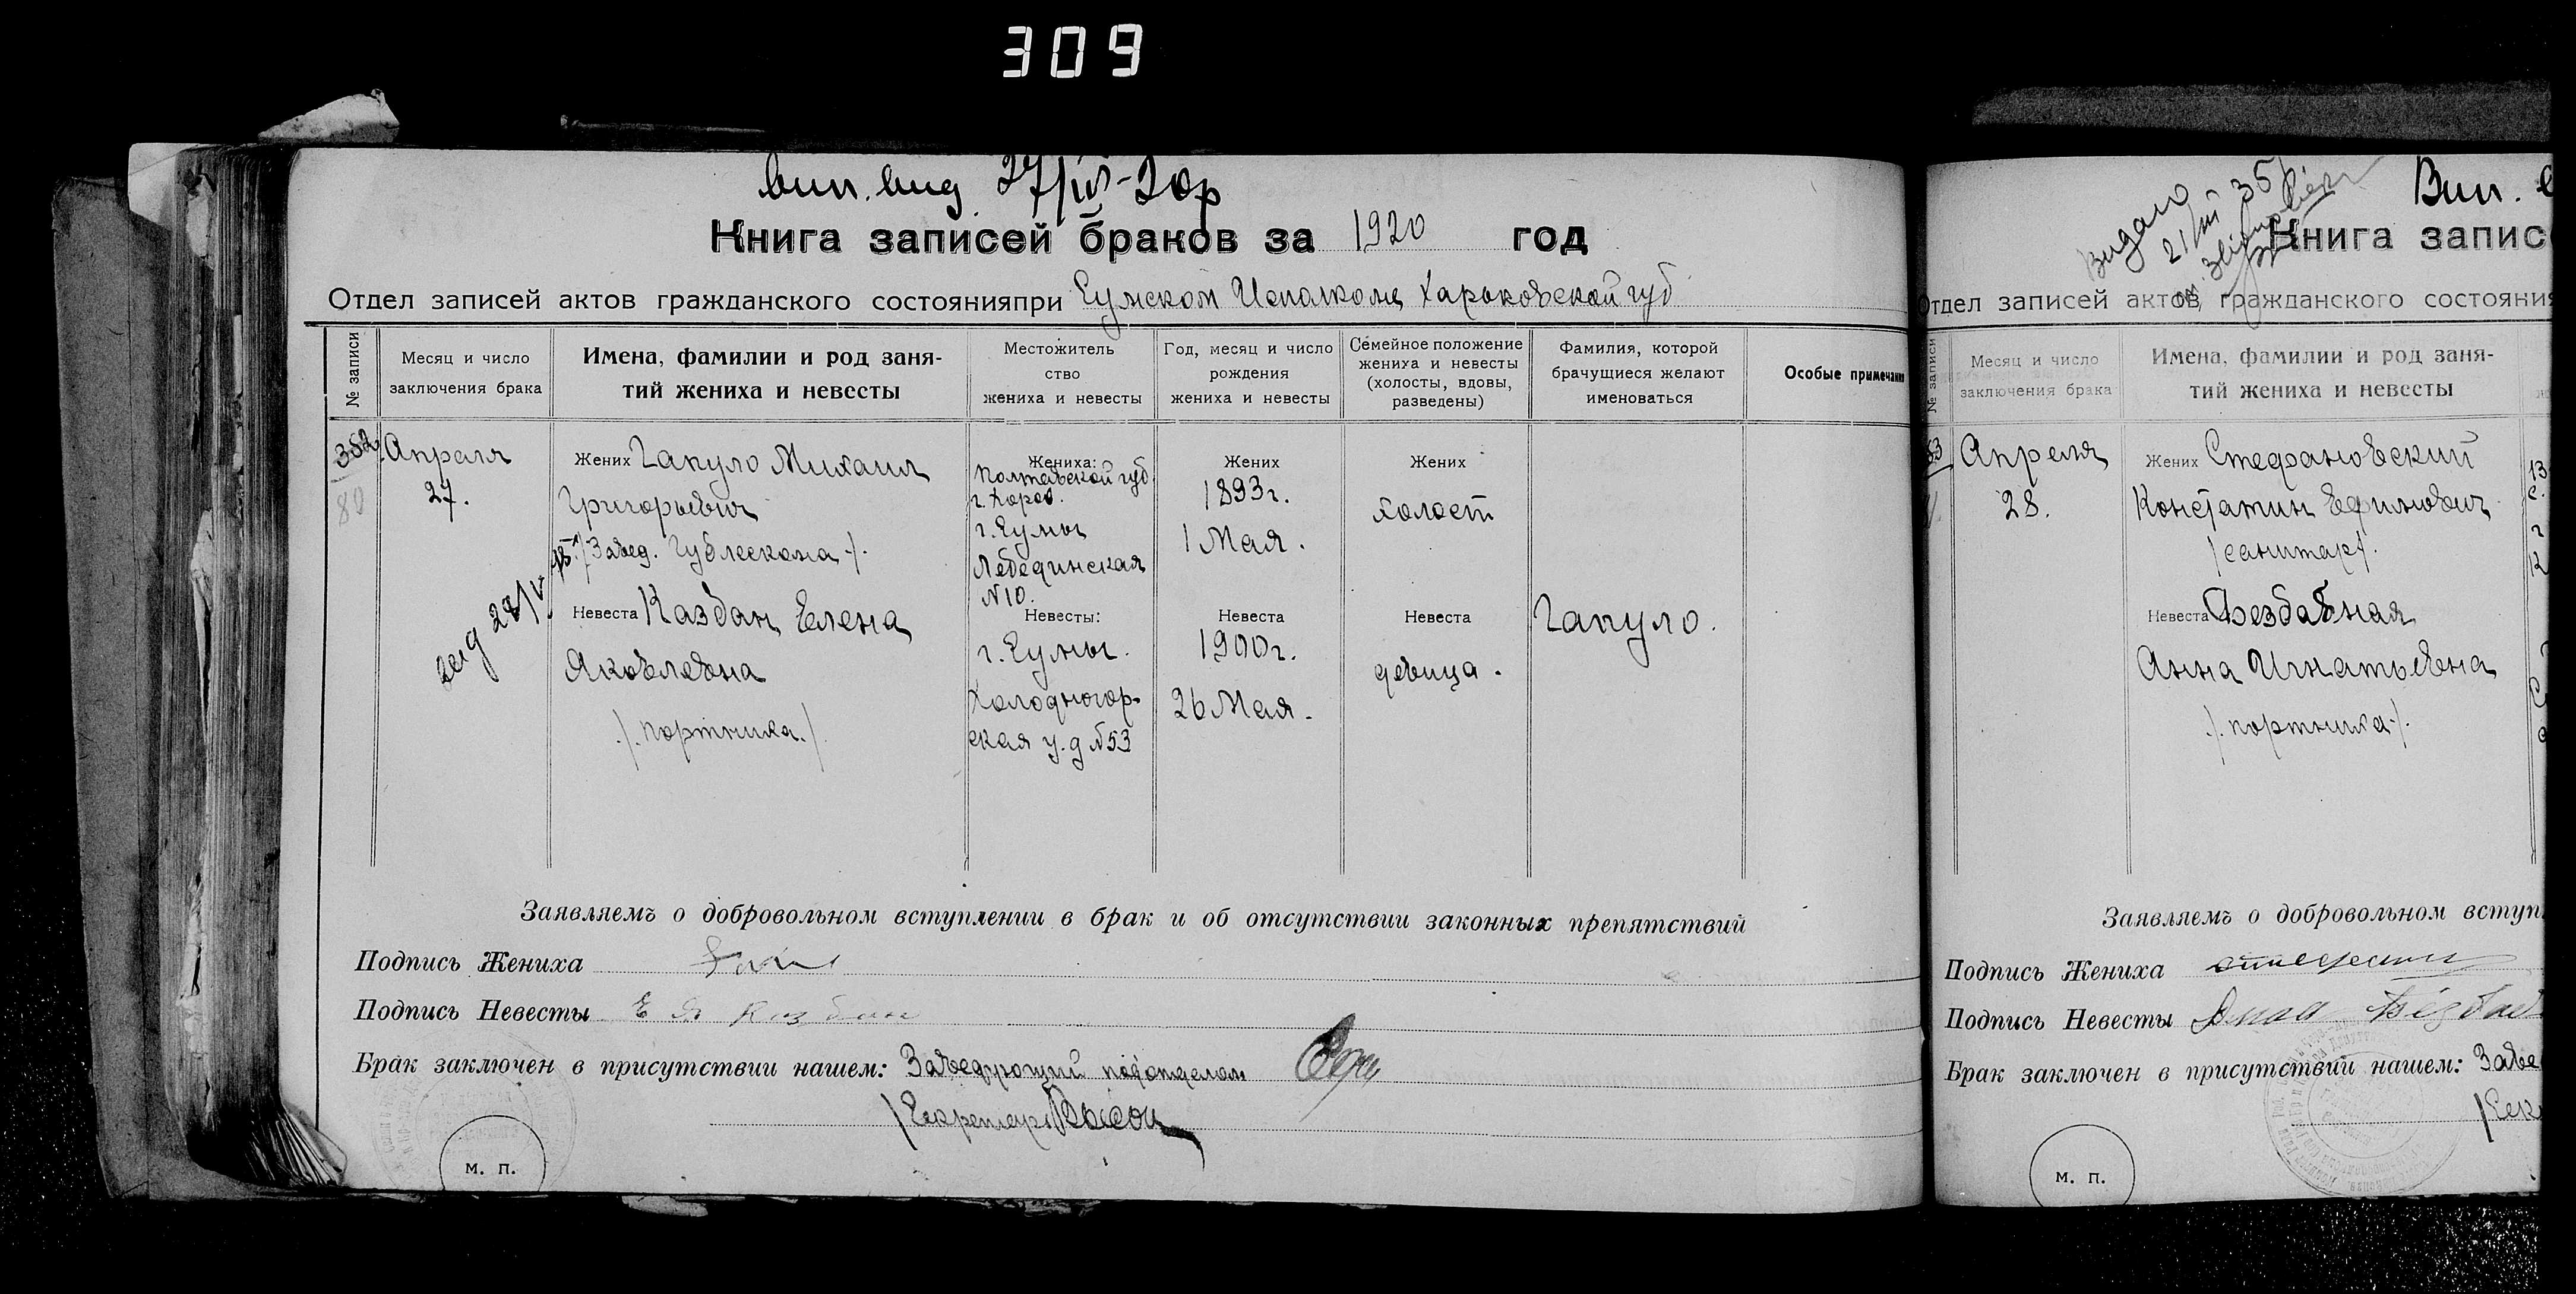 309
вип. вид. 27/IV-20р
Книга записей браков за 1920 год
Отдел записей актов гражданского состоянияпри Сумском Исполкоме Харьковской губ
№ записи
Месяц и число
заключения брака
Имена, фамилии и род заня-
тий жениха и невесты
Местожитель
ство
жениха и невесты
Год, месяц и число
рождения
жениха и невесты
Семейное положение
жениха и невесты
(холосты, вдовы,
разведены)
Фамилия, которой
брачущиеся желают
именоваться
Особые примечани
352
80
Апреля
27.
Жених Гапуло Михаил
Григорьевич
/Завед. Гублескома/.
Невеста Каздан Елена
Яковлевна
/. портниха./
Жениха:
Полтавской губ
г. Хорол.
г. Сумы
Лебединская
№10.
Невесты:
г. Сумы.
Холодногор-
ская у. д №53
Жених
1893г.
1 Мая.
Невеста
1900г.
26 Мая.
Жених
холост
Невеста
девица.
Гапуло.
Заявляемъ о добровольном вступлении в брак и об отсутствии законных препятствий
Подпись Жениха
Подпись Невесты Е Я Каздан
Брак заключен в присутствии нашем: Заведующий подотделом
/Секретарь
м. п.
Видано
21/III 35
Вип.
Книга запис
Отдел записей актов гражданского состояния
№ записи
Месяц и число
заключения брака
Имена, фамилии и род заня-
тий жениха и невесты
53
Апреля
28.
Жених Стефановский
Констатин Ефимович
/санитар/.
Невеста Безбавная
Анна Игнатьевна
/. портниха./.
Заявляемъ о добровольном вступ
Подпись Жениха
Подпись Невесты Анна
Брак заключен в присутствии нашем: Заве
/Сек
м. п.